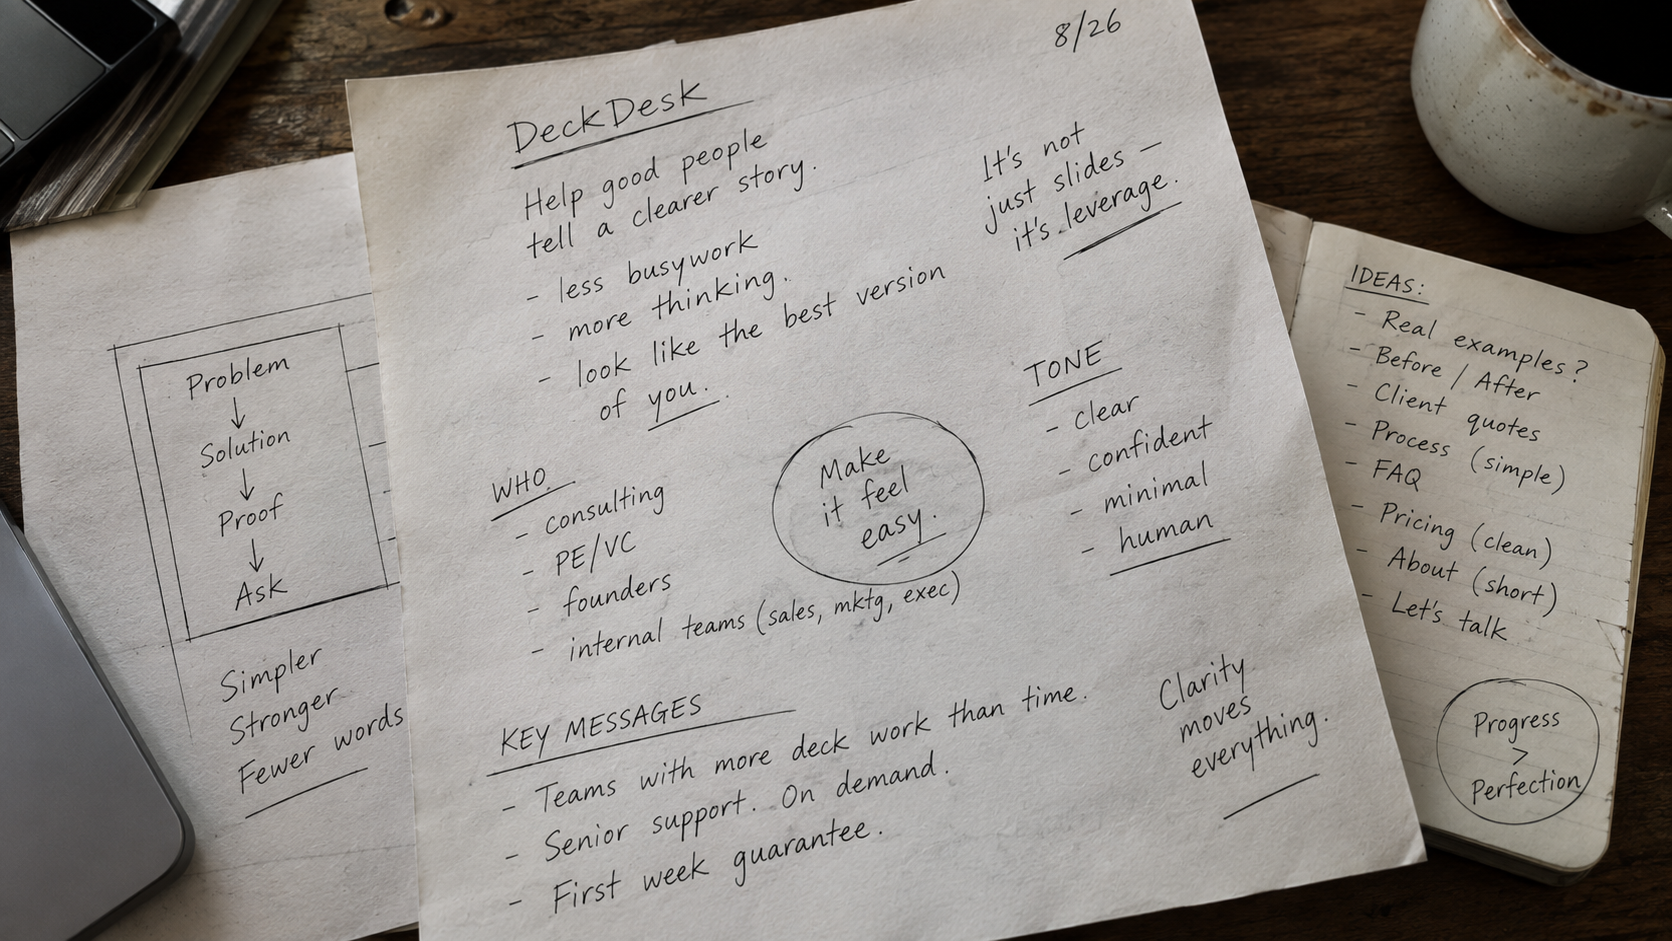 8/26
DeckDesk
Help good people
tell a clearer story.
- less busywork
- more thinking.
- look like the best version
of you.
It's not
just slides –
it's leverage.
WHO
- consulting
- PE/VC
- founders
- internal teams (sales, mktg, exec)
Make
it feel
easy.
TONE
- clear
- confident
- minimal
- human
KEY MESSAGES
- Teams with more deck work than time.
- Senior support. On demand.
- First week guarantee.
Clarity
moves
everything.
Problem
↓
Solution
↓
Proof
↓
Ask
Simpler
Stronger
Fewer words
IDEAS:
- Real examples?
- Before / After
- Client quotes
- Process (simple)
- FAQ
- Pricing (clean)
- About (short)
- Let's talk
Progress
>
Perfection